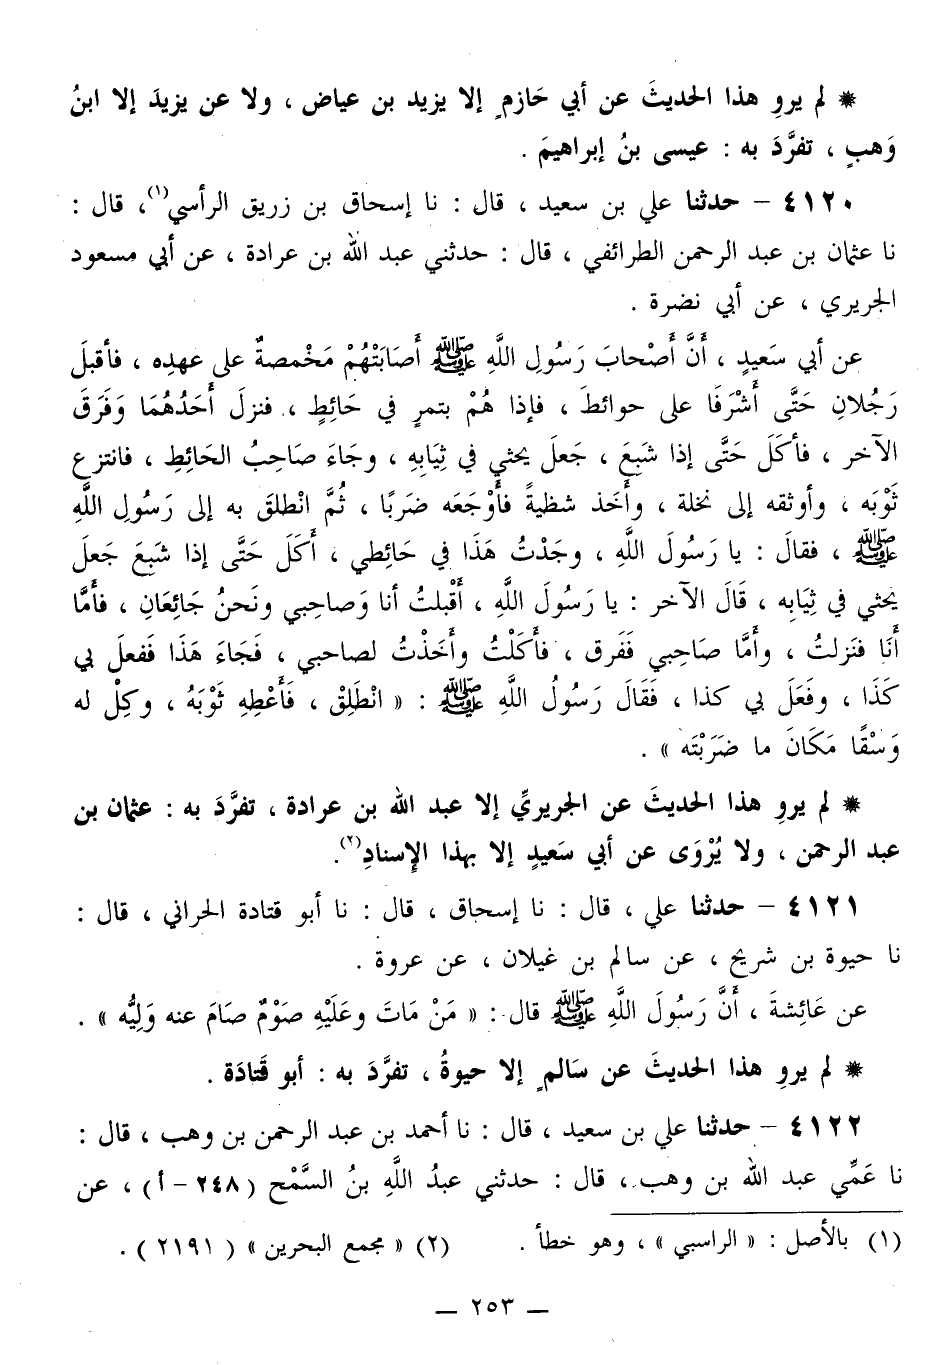 * لم يروِ هذا الحديثَ عن أبي حَازمٍ إلا يزيد بن عياض ، ولا عن يزيدَ إلا ابنُ
وَهبٍ ، تفرَّدَ به : عيسى بنُ إبراهيمَ .
٤١٢٠ – حدثنا علي بن سعيد ، قال : نا إسحاق بن زريق الرأسي(١)، قال :
نا عثمان بن عبد الرحمن الطرائفي ، قال : حدثني عبد الله بن عرادة ، عن أبي مسعود
الجريري ، عن أبي نضرة .
عن أبي سَعيدٍ ، أَنَّ أَصْحابَ رَسُولِ اللَّهِ ﷺ أَصَابَتْهُمْ مَخْمصةٌ على عهدِه ، فأقبلَ
رَجُلانِ حَتَّى أَشْرَفَا على حوائطَ ، فإذا هُمْ بتمرٍ في حَائِطٍ ، فنزلَ أَحَدُهُمَا وَفَرَقَ
الآخر ، فأكَلَ حَتَّى إذا شَبَعَ ، جَعلَ يحثي في ثِيَابِهِ ، وجَاءَ صَاحِبُ الحَائِطِ ، فانتزع
ثَوْبَه ، وأوثقه إلى نخلة ، وأَخَذ شظيةً فأَوْجَعَه ضَربًا ، ثُمَّ انْطلقَ به إلى رَسُولِ اللَّهِ
ﷺ ، فقالَ : يا رَسُولَ اللَّهِ ، وجَدْتُ هَذَا في حَائِطي ، أَكَلَ حَتَّى إذا شَبَعَ جَعلَ
يحثي في ثِيَابِه ، قَالَ الآخر : يا رَسُولَ اللَّهِ ، أَقْبلتُ أنا وَصاحِبي ونَحنُ جَائِعَانِ ، فأَمَّا
أَنَا فنَزلتُ ، وأَمَّا صَاحِبي فَفَرق ، فأَكَلْتُ وأَخَذْتُ لصاحبي ، فَجَاءَ هَذَا فَفعلَ بي
كَذَا ، وفَعَلَ بي كذا ، فَقَالَ رَسُولُ اللَّهِ ﷺ : « انْطَلِقْ ، فَأَعْطِهِ ثَوْبَهُ ، وكِلْ له
وَسْقًا مَكَانَ ما ضَرَبْتَه » .
* لم يروِ هذا الحديثَ عن الجريريِّ إلا عبد الله بن عرادة ، تفرَّدَ به : عثمان بن
عبد الرحمن ، ولا يُرْوَى عن أبي سَعيدٍ إلا بهذا الإسنادِ(٢).
٤١٢١ – حدثنا علي ، قال : نا إسحاق ، قال : نا أبو قتادة الحراني ، قال :
نا حيوة بن شريح ، عن سالم بن غيلان ، عن عروة .
عن عَائِشةَ ، أَنَّ رَسُولَ اللَّهِ ﷺ قال : « مَنْ مَاتَ وعَلَيْهِ صَوْمٌ صَامَ عنه وَلِيُّه » .
* لم يروِ هذا الحديثَ عن سَالمٍ إلا حيوةُ ، تفرَّدَ به : أبو قَتادَة .
٤١٢٢ – حدثنا علي بن سعيد ، قال : نا أحمد بن عبد الرحمن بن وهب ، قال :
نا عَمِّي عبد الله بن وهب ، قال : حدثني عبدُ اللَّهِ بنُ السَّمْح ( ٢٤٨ – أ ) ، عن
(١) بالأصل : « الراسبي » ، وهو خطأ . (٢) « مجمع البحرين » ( ٢١٩١ ) .
— ٢٥٣ —